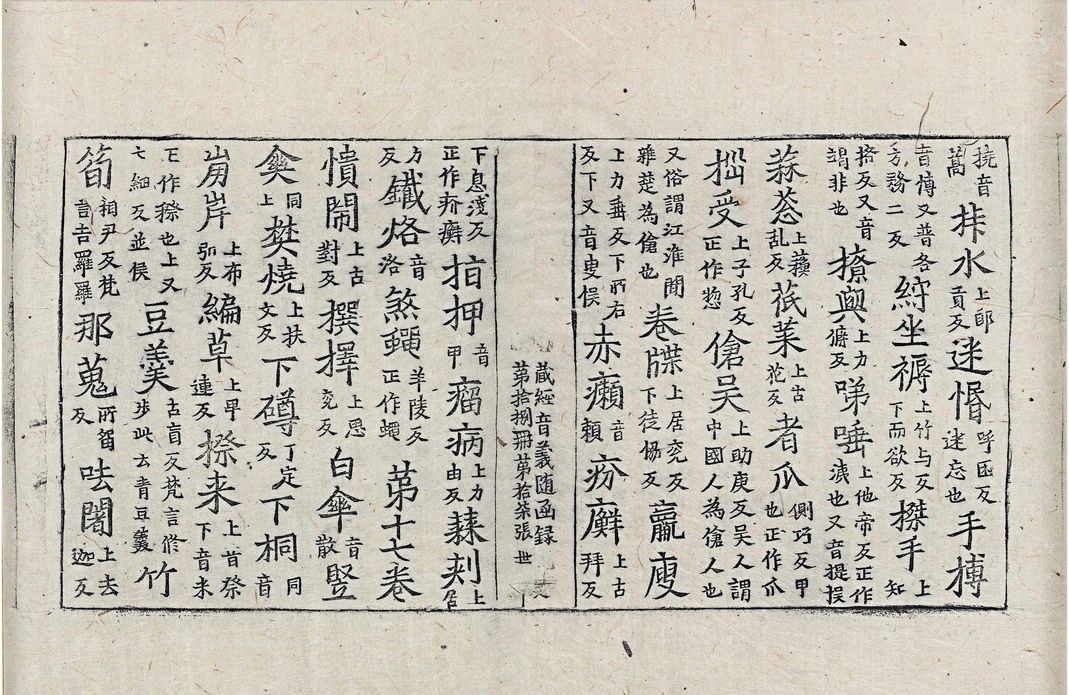 撓音蒿㧊水上郎貢反迷惛呼困反迷忘也手摶
音愽又普各方務二反紨坐褥上竹与反下而欲反搩手上知
挌反又音謂非也撩與上力㢘反㖒唾上他帝反正作涕也又音提悮
蒜䓗上蘓乱反苽葉上古花反者爪側巧反甲也正作爪
揔受上子孔反正作惣傖吴上助庚反吴人謂中國人為傖人也
又俗謂江淮閒雅楚為傖也卷牒上居兖反下徒恊反羸廋
上力垂反下所右反下又音叟悮赤癩音頼疥廯上古拜反
藏經音義随函録第拾捌冊第拾柒張世
下息淺反正作疥癬拍押音甲瘤病上力由反蕀刾上居
方反鐵烙音洛煞蠅羊陵反正作蠅第十七卷
憒閙上古對反撰擇上思兖反白傘音散竪
傘同上樊燒上扶文反下磸丁定反下桐音同
崩岸上布弘反編草上早連反摖来上音祭下音米
𠀋作穄也上又七細反並悮豆羮古盲反梵言修步此云青豆羮竹
筍祠尹反梵言告羅羅那蒐所留反呿闍上去迦反